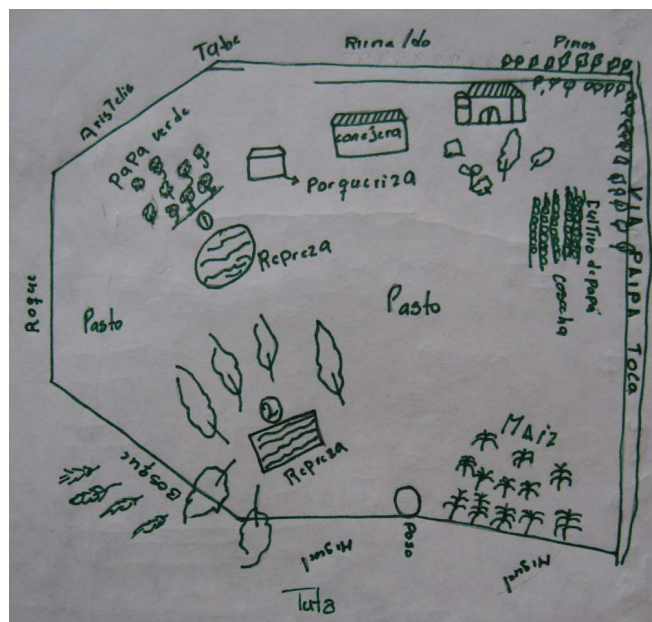 Tabe
Rima/do
Pinos
Aristelis
Papa verde
conejera
Porqueriza
1
Repreza
VIA PAIPA TOCA
Cultivo de papá
cosecha
Roque
Pasto
Pasto
2
Repreza
Maiz
Bosque
Poso
Miguel
Miguel
Tuta